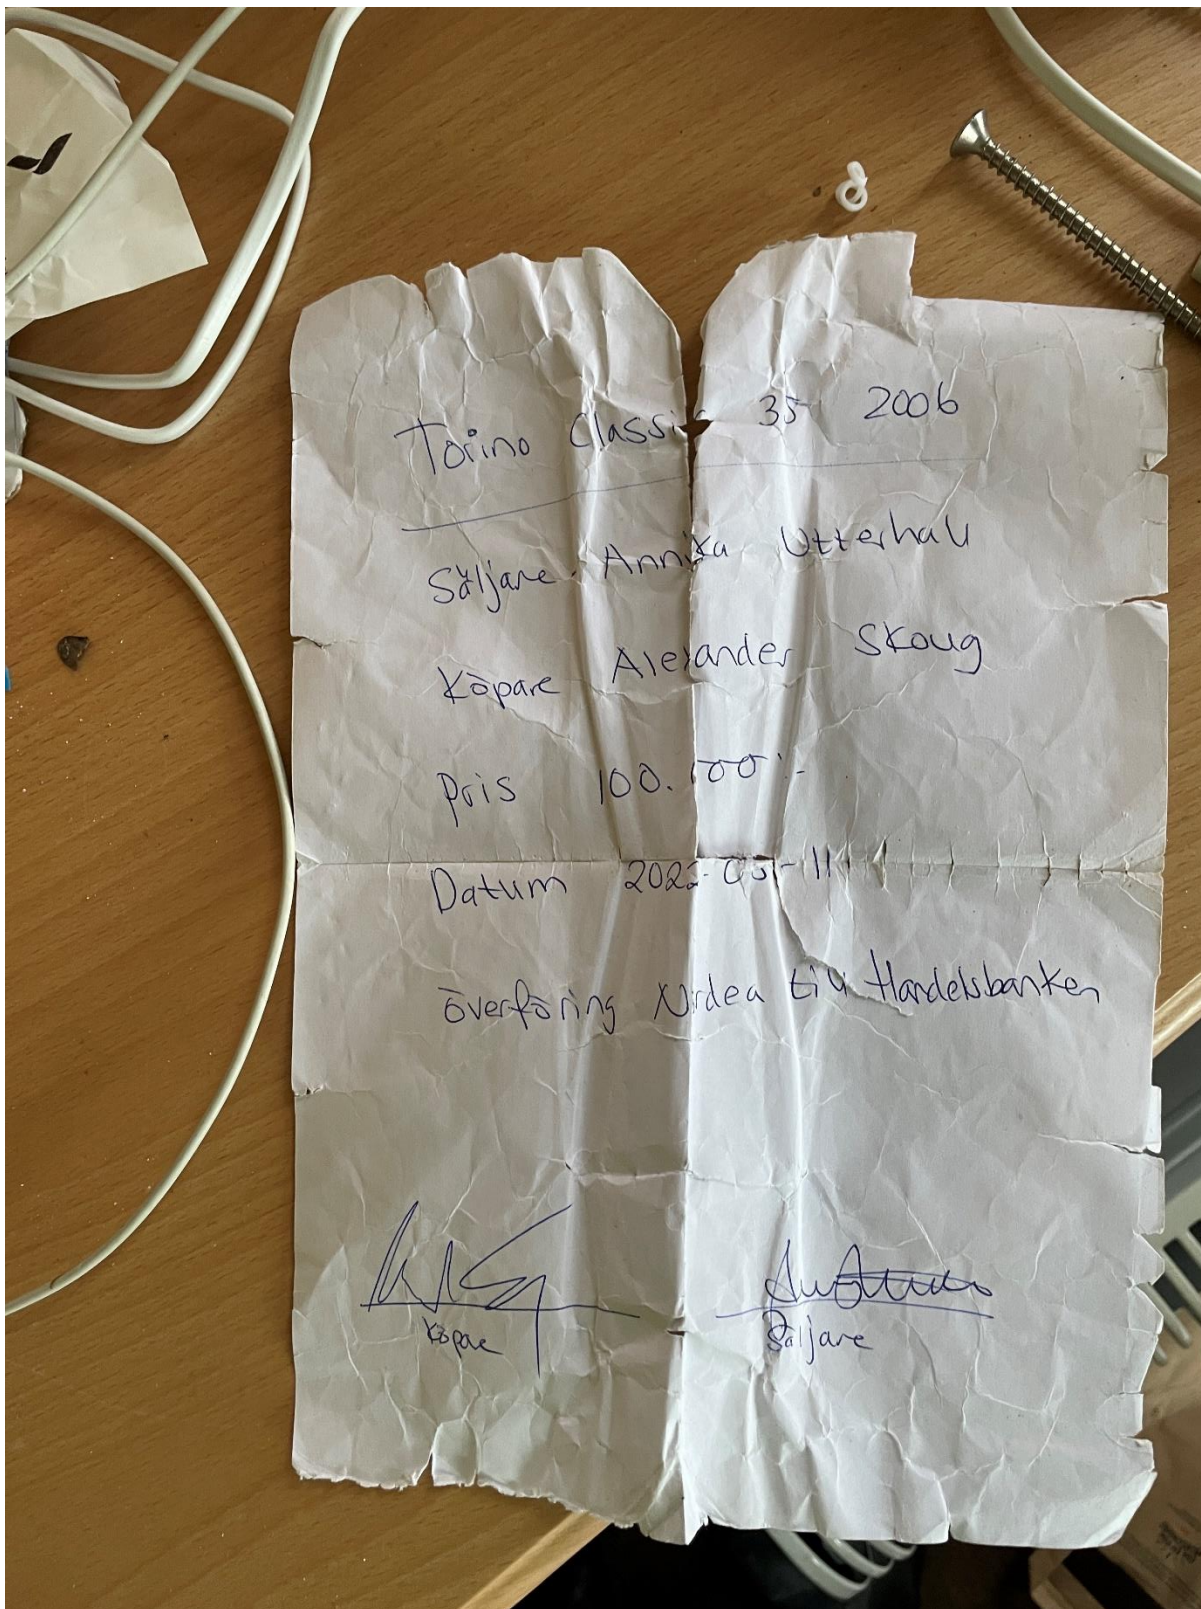 Torino Classic 35 2006
Säljare Annika Utterhall
Köpare Alexander Skoug
Pris 100.100:-
Datum 2022-05-11
överföring Nordea till Handelsbanken
Köpare Säljare